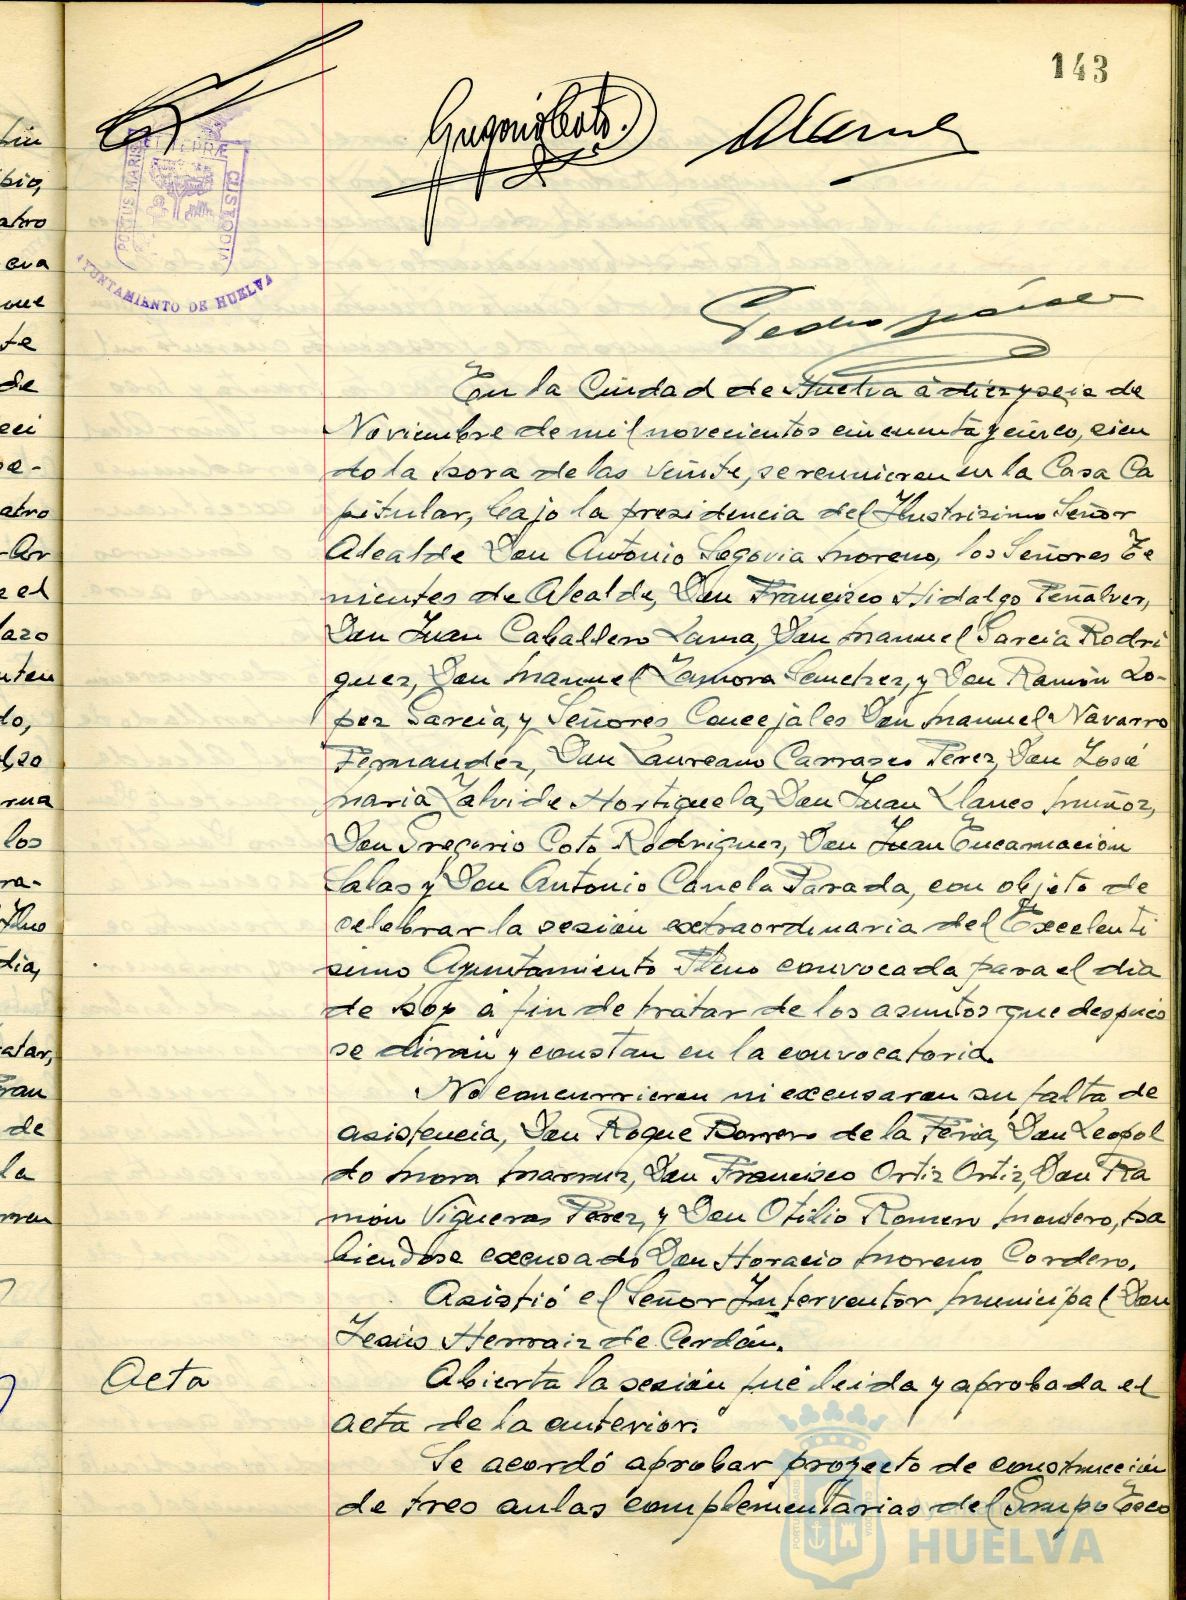 143
Gregorio Coto.
PORTUS MARIS ET TERRÆ CUSTODIA
AYUNTAMIENTO DE HUELVA
En la Ciudad de Huelva á diez y seis de
Noviembre de mil novecientos cincuenta y cinco, sien
do la hora de las veinte, se reunieron en la Casa Ca
pitular, bajo la presidencia del Ilustrisimo Señor
Alcalde Don Antonio Segovia Moreno, los Señores Te
nientes de Alcalde, Don Francisco Hidalgo Peñalver,
Don Juan Caballero Lama, Don Manuel Garcia Rodri
guez, Don Manuel Zamora Sanchez, y Don Ramón Lo-
pez Garcia, y Señores Concejales Don Manuel Navarro
Fernandez, Don Laureano Carrasco Perez, Don José
Maria Zalvide Hortiguela, Don Juan Llanes Muñoz,
Don Gregorio Coto Rodriguez, Don Juan Encarnación
Salas y Don Antonio Canela Parada, con objeto de
celebrar la sesión extraordinaria del Excelenti
simo Ayuntamiento Pleno convocada para el dia
de hoy á fin de tratar de los asuntos que después
se dirán y constan en la convocatoria.
No concurrieron ni excusaron su falta de
asistencia, Don Roque Borrero de la Feria, Don Leopol
do Mora Don Francisco Ortiz Ortiz, Don Ra
món Vigueras Perez, y Don Otilio Romero Montero, ha
biendose excusado Don Horacio Moreno Cordero.
Asistió el Señor Interventor Municipal Don
Jesús Herraiz de Cerdán.
Acta
Abierta la sesión fué leida y aprobada el
acta de la anterior.
Se acordó aprobar proyecto de construcción
de tres aulas complementarias del Grupo Esco
HUELVA